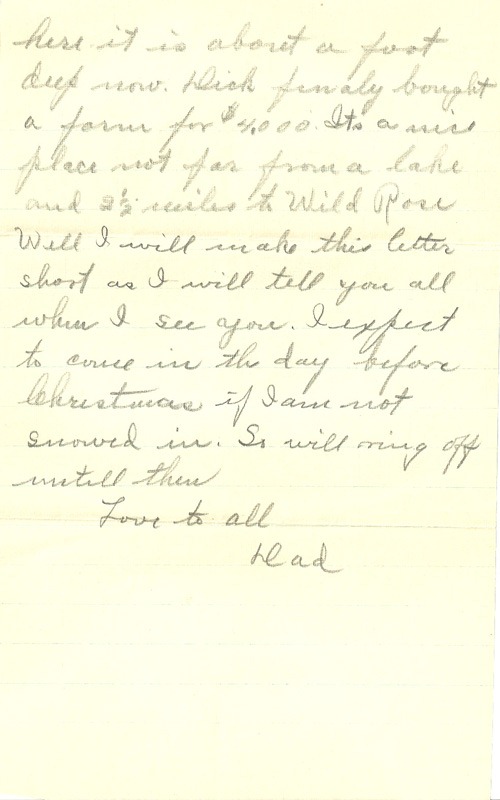 here it is about a foot
deep now. Dick finaly bought
a farm for $4000. Its a nice
place not far from a lake
and 2½ miles to Wild Rose
Well I will make this letter
short as I will tell you all
when I see you. I expect
to come in the day before
Christmas if I am not
snowed in. So will ring off
untill then
Love to all
Dad